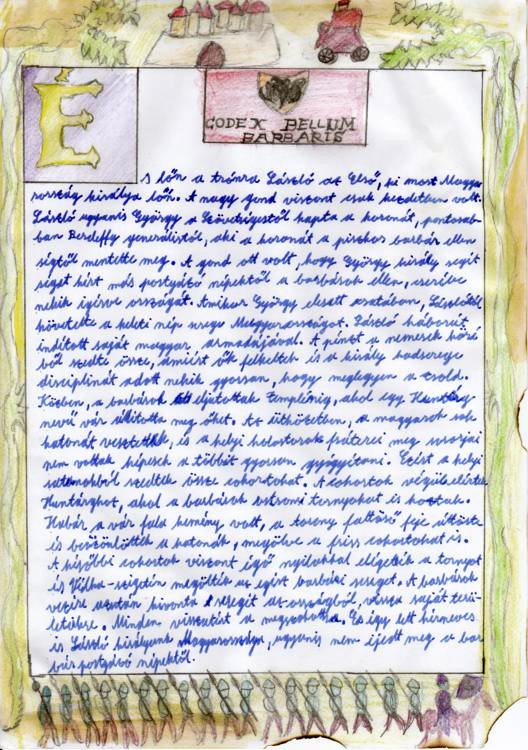 É
CODEX BELLUM
BARBARIS
s lőn a trónra László az Első, ki most Magyar
ország királya lőn. A nagy gond viszont csak kezdetben volt.
László ugyanis György a Szövetségestől kapta a koronát, pontosab-
ban Berdeffy generálistól, aki a koronát a piszkos barbár ellen
ségtől mentette meg. A gond ott volt, hogy György király segít
séget kért más postyázó népektől a barbárok ellen, cserébe
nekik ígérve országát. Amikor György elesett csatában, Lászlótól
követelte a keleti nép serege Magyarországot. László háborút
indított saját magyar armadájával. A pénzt a nemesek köré
ből szedte össze, amiért ők felkeltek is a király hadserege
disciplinát adott nekik gyorsan, hogy meglegyen a zsold.
Közben, a barbárok eljutottak Templénig, ahol egy Huntárg
nevű vár állította meg őket. Az ütközetben, a magyarok sok
katonát vesztettek, és a helyi kolostorok fráterei meg
nem voltak képesek a többit gyorsan gyógyítani. Ezért a helyi
szedtek össze cohortokat. A cohortok végül elérték
Huntárghot, ahol a barbárok ostromi tornyokat is hoztak.
Habár a vár fala kemény volt, a torony faltörő feje áttörte
és beözönlöttek a katonák, megölve a friss cohortokat is.
A későbbi cohortok viszont égő nyilakkal elégették a tornyot
és Vidha-szigetén megölték az egész barbár sereget. A barbárok
vezére azután kivonta seregét az országból vissza saját terü-
letükre. Minden visszatért a megszokotthoz. És így lett hírneves
is László királyunk Magyarországa, ugyanis nem ijedt meg a bar
bár postyázó népektől.